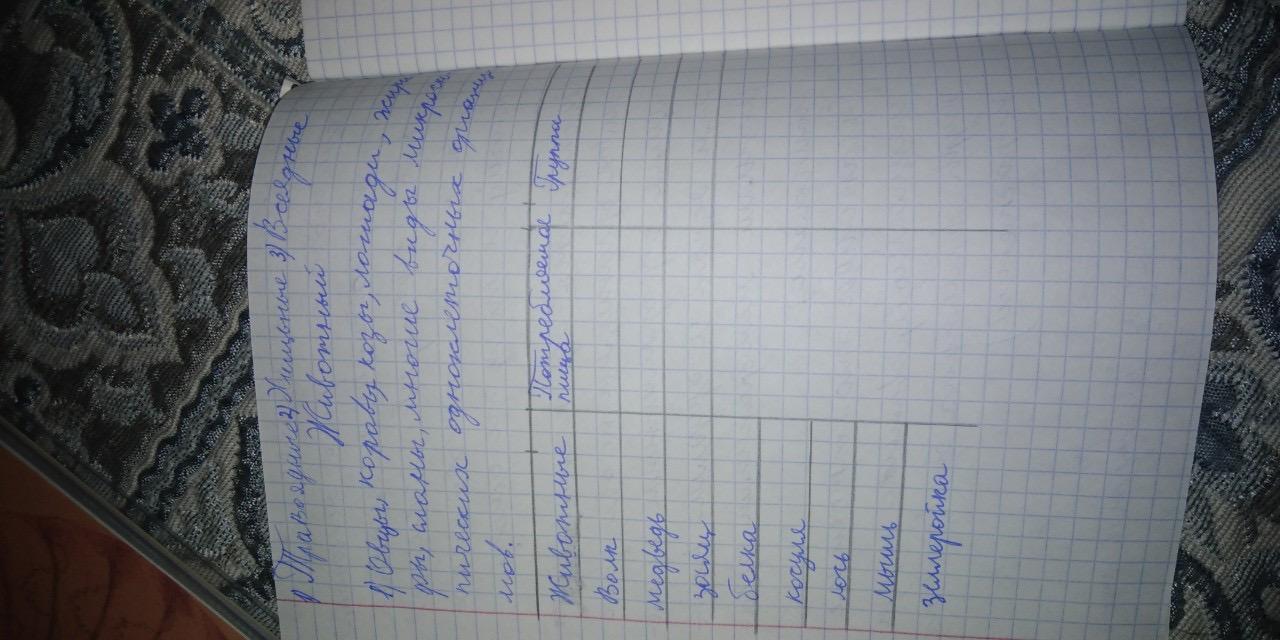 1) Травоядные 2) Хищные 3) Всеядные
Животный
1) Овцы, коровы, козы, лошади, жира
фы, ламы, многие виды микроско
пических одноклеточных организ
мов.
Животные Потребляемая пища Группы
Волк
медведь
заяц
белка
косуля
лось
мышь
землеройка